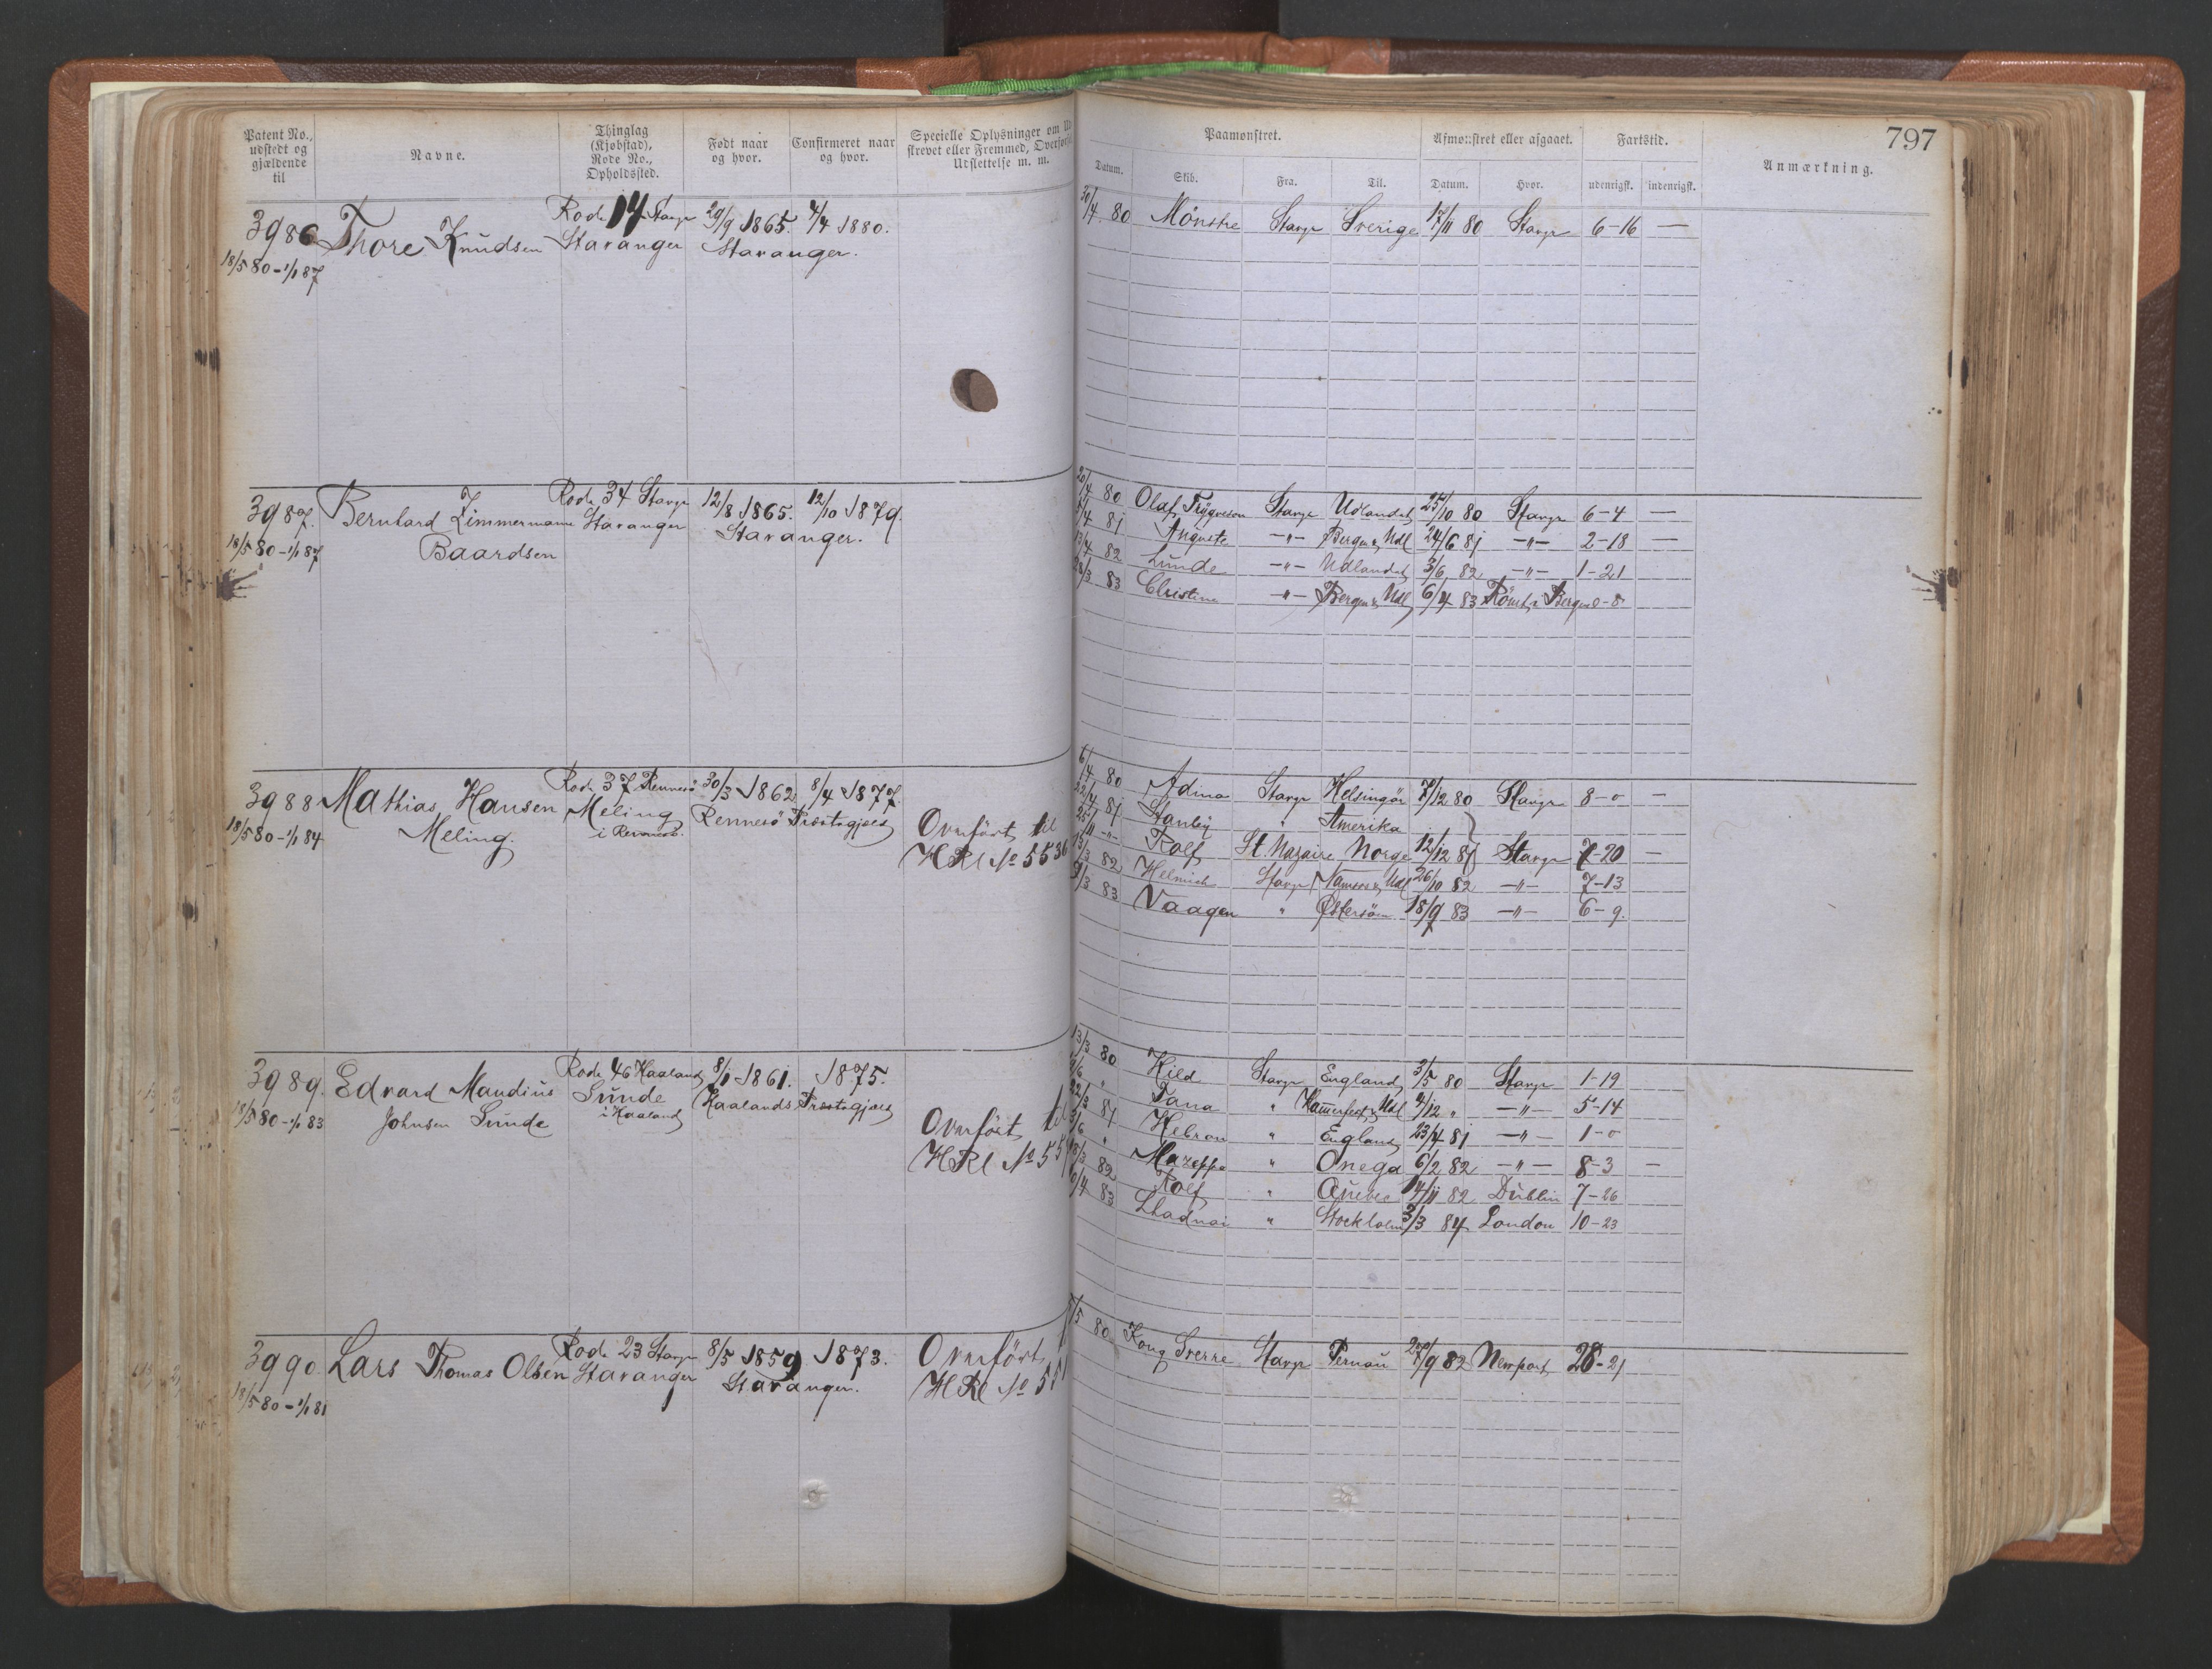 797
Patent No., udstedt og gjældende til
Navne.
Thinglag (Kjøbstad), Rode No., Opholdssted.
Født naar og hvor.
Confirmeret naar og hvor.
Specielle Oplysninger om
skrevet eller Fremmed, Overført
Udslettelse m. m.
Paamønstret.
Afmønstret eller afgaaet.
Fartstid.
Anmærkning.
Datum. Skib. Fra. Til. Datum. Hvor. udenrigsk. indenrigsk.
3986 Thore Knudsen Rode 14 Stavgr 29/9 1865. 4/4 1880.
18/5 80 - 1/1 87 Stavanger Stavanger.
20/4 80 Mönstre Stavgr Sverige 17/11 80 Stavgr 6-16 —
3987. Bernhard Zimmermann Rode 34 Stavgr 12/8 1865. 12/10 1879.
18/5 80 - 1/1 87 Baardsen Stavanger Stavanger.
20/4 80 Olaf Trÿgveson Stavgr Udlandet 25/10 80 Stavgr 6-4 —
81 Auguste —"— Bergen & Udl 24/6 81 —"— 2-18 —
13/4 82 Lunde —"— Udlandet 3/6 82 —"— 1-21
28/3 83 Christine —"— Bergen & Udl 6/4 83 Bergen 0-8
3988 Mathias Hansen Rode 37 Rennesö 30/3 1862 8/4 1877.
18/5 80 - 1/1 84 Meling. Meling i Rennesö. Rennesö Præstegjæld
Overfört til
HRl No 5536
6/4 80 Adma Stavgr Helsingör 7/12 80 Stavgr 8-0 —
22/4 81 Stanley " Amerika
25/11 —"— Rolf St. Nazaire Norge 12/12 81 Stavgr 7-20 —
82 Helmich Stavgr & Udl 26/10 82 —"— 7-13
/3 83 Vaagen " Østersöen 18/9 83 —"— 6-9.
3989. Edvard Maudius Rode 46 Haaland 8/1 1861. 1875.
18/5 80 - 1/1 83 Johnsen Sunde Sunde i Haaland Haalands Præstegjæld
Overfört til
HRl No 55
13/3 80 Hild Stavgr England 3/5 80 Stavgr 1-19
/6 " Tana " Hammerfest & Udl 4/12 " —"— 5-14
22/3 81 Hebron " England 23/4 81 —"— 1-0
/6 " Mazeppa " Onega 6/2 82 —"— 8-3 —
/3 82 Rolf " Quebec 14/11 82 Dublin 7-26
/4 83 " Stockholm 3/3 84 London 10-23
3990. Lars Thomas Olsen Rode 23 Stavgr 8/5 1859 1873.
18/5 80 - 1/1 81 Stavanger Stavanger.
Overfört
HRl No 55
/5 80 Kong Sverre Stavgr Pernau 27/9 82 Newport 28-21